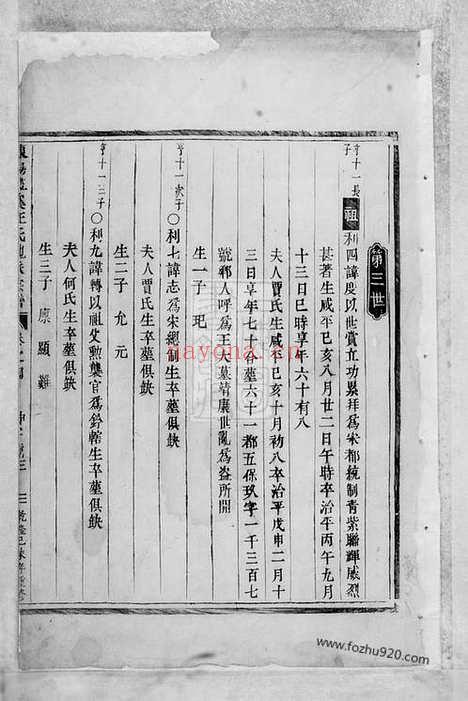 第三世
亨十一長子
祖 利四諱度以世賞立功累拜爲宋都統制青紫聯輝威烈
甚著生咸平己亥八月廿二日午時卒治平丙午九月
十三日巳時享年六十有八
夫人賈氏生咸平己亥十月初八卒治平戊申二月十
三日享年七十合墓六十一都五保玖字一千三百七
號鄉人呼爲王大墓靖康世亂爲盜所開
生一子 玘
亨十一次子
○利七諱志爲宋總制生卒墓俱缺
夫人賈氏生卒墓俱缺
生二子 允 元
亨十一三子
○利九諱轉以祖父勲襲官爲鈐轄生卒墓俱缺
夫人何氏生卒墓俱缺
生三子 康 顯 難
nayona.cn
www.fozhu920.com